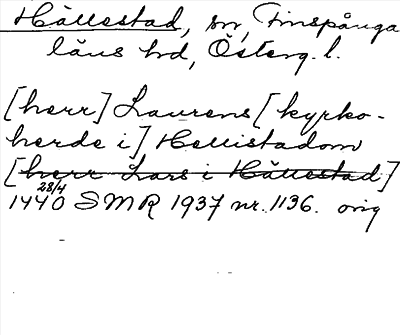 Hällestad, sn, Finspånga
läns hd, Österg. l.
[herr] Laurens [kyrko-
herde i] Hellistadom
[herr Lars i Hällestad]
1440 28/4 SMR 1937 nr. 1136. orig